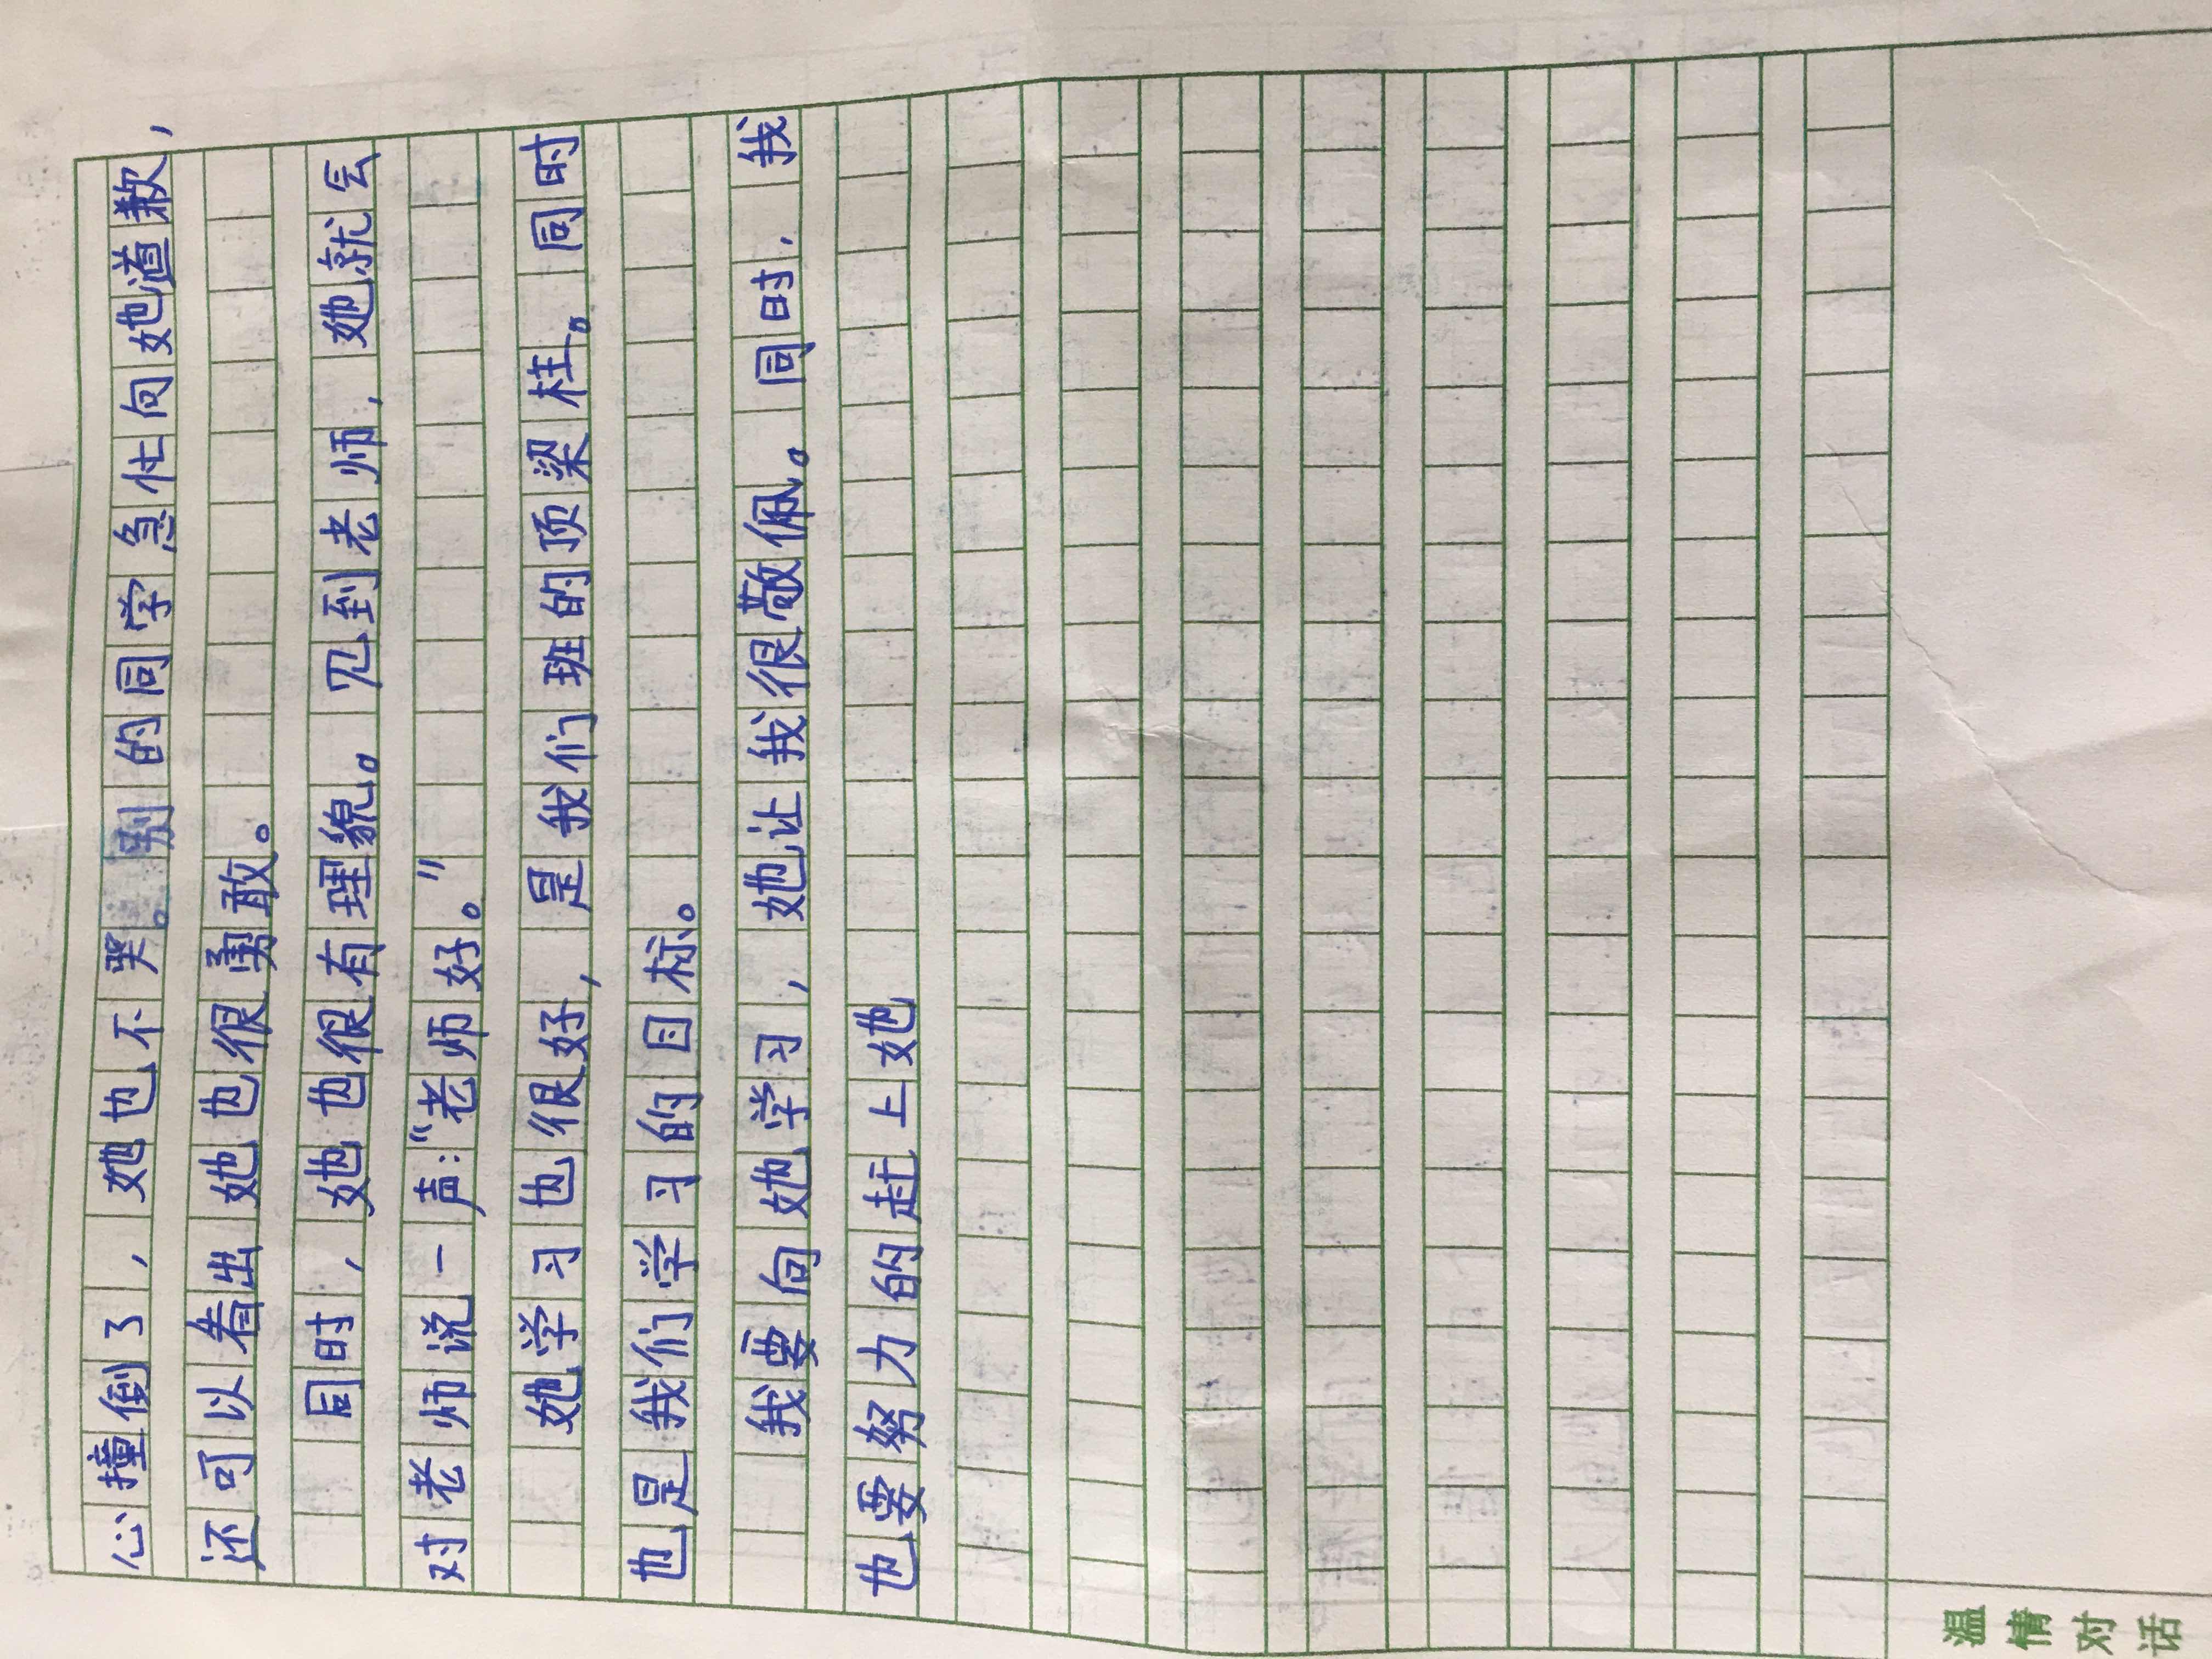 心撞倒了，她也不哭。别的同学急忙向她道歉，
还可以看出她也很勇敢。
同时，她也很有理貌。见到老师，她就会
对老师说一声：“老师好。”
她学习也很好，是我们班的顶梁柱。同时
也是我们学习的目标。
我要向她学习，她让我很敬佩。同时，我
也要努力的赶上她
温情对话